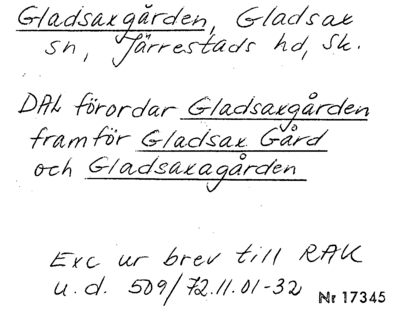 Gladsaxgården, Gladsax
sn, Järrestads hd, Sk.
DAL förordar Gladsaxgården
framför Gladsax Gård
och Gladsaxagården
Exc ur brev till RAK
u.d. 509/72.11.01-32 Nr 17345